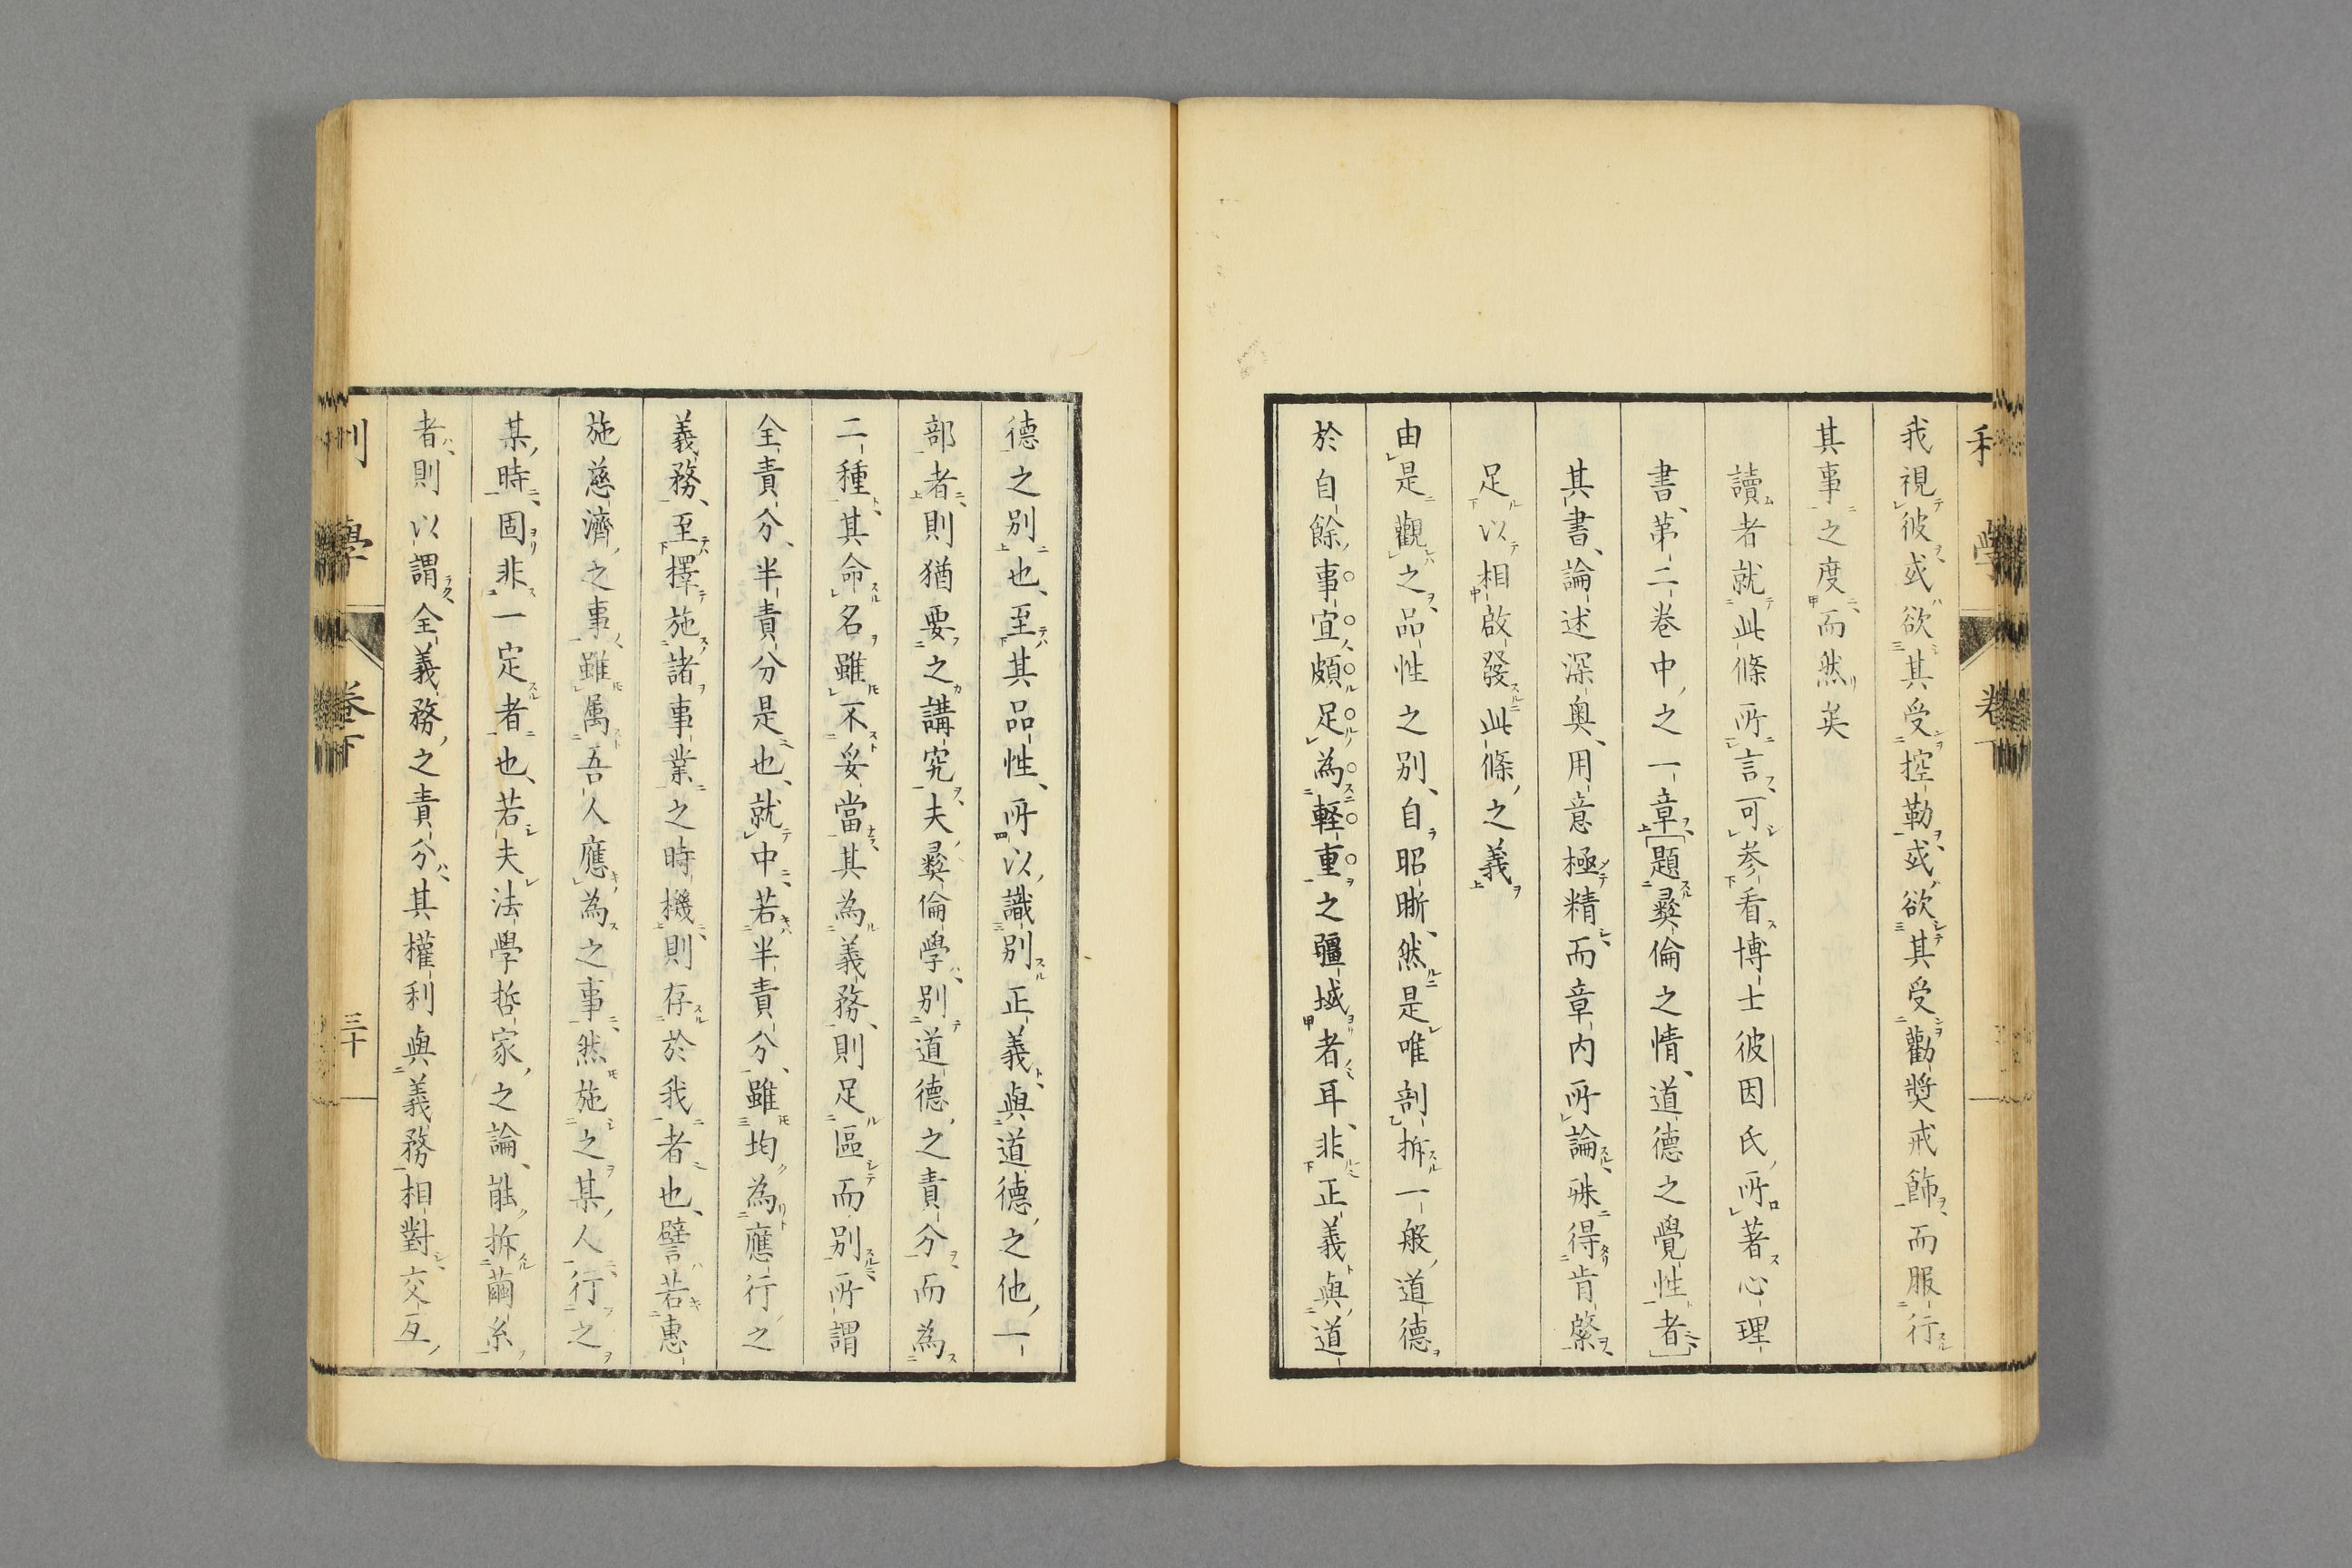 我視彼或欲其受控勒或欲其受勸奬戒飾而服行
其事之度而然矣
讀者就此條所言可参看博士彼因氏所著心理
書第二巻中之一章題彛倫之情道德之覺性者
其書論述深奥用意極精而章内所論殊得肯綮
足以相啟發此條之義
由是觀之品性之別自昭晰然是唯剖拆一般道德
於自餘事宜頗足為軽重之疆域者耳非正義與道
德之別也至其品性所以識別正義與道德之他一
部者則猶要之講究夫彛倫學別道德之責分而為
二種其命名雖不妥當其為義務則足區而別所謂
全責分半責分是也就中若半責分雖均為應行之
義務至擇施諸事業之時機則存於我者也譬若惠
施慈濟之事雖属吾人應為之事然施之某人行之
某時固非一定者也若夫法學哲家之論能拆繭糸
者則以謂全義務之責分其權利與義務相對交互
學 卷下
三十